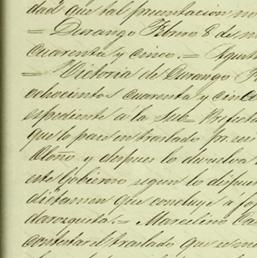 dad que tal presentacion no
– Durango Febrero 8 de m
cuarenta y cinco. – Agust
– Victoria de Durango F
ochocientos cuarenta y cinco
espediente a la Sub Prefectu
que lo pase en traslado
y despues lo devuelva
este Gobierno segun lo dispue
dictamen que concluye a fo
– Marcelino Ca
contestar el traslado que se me